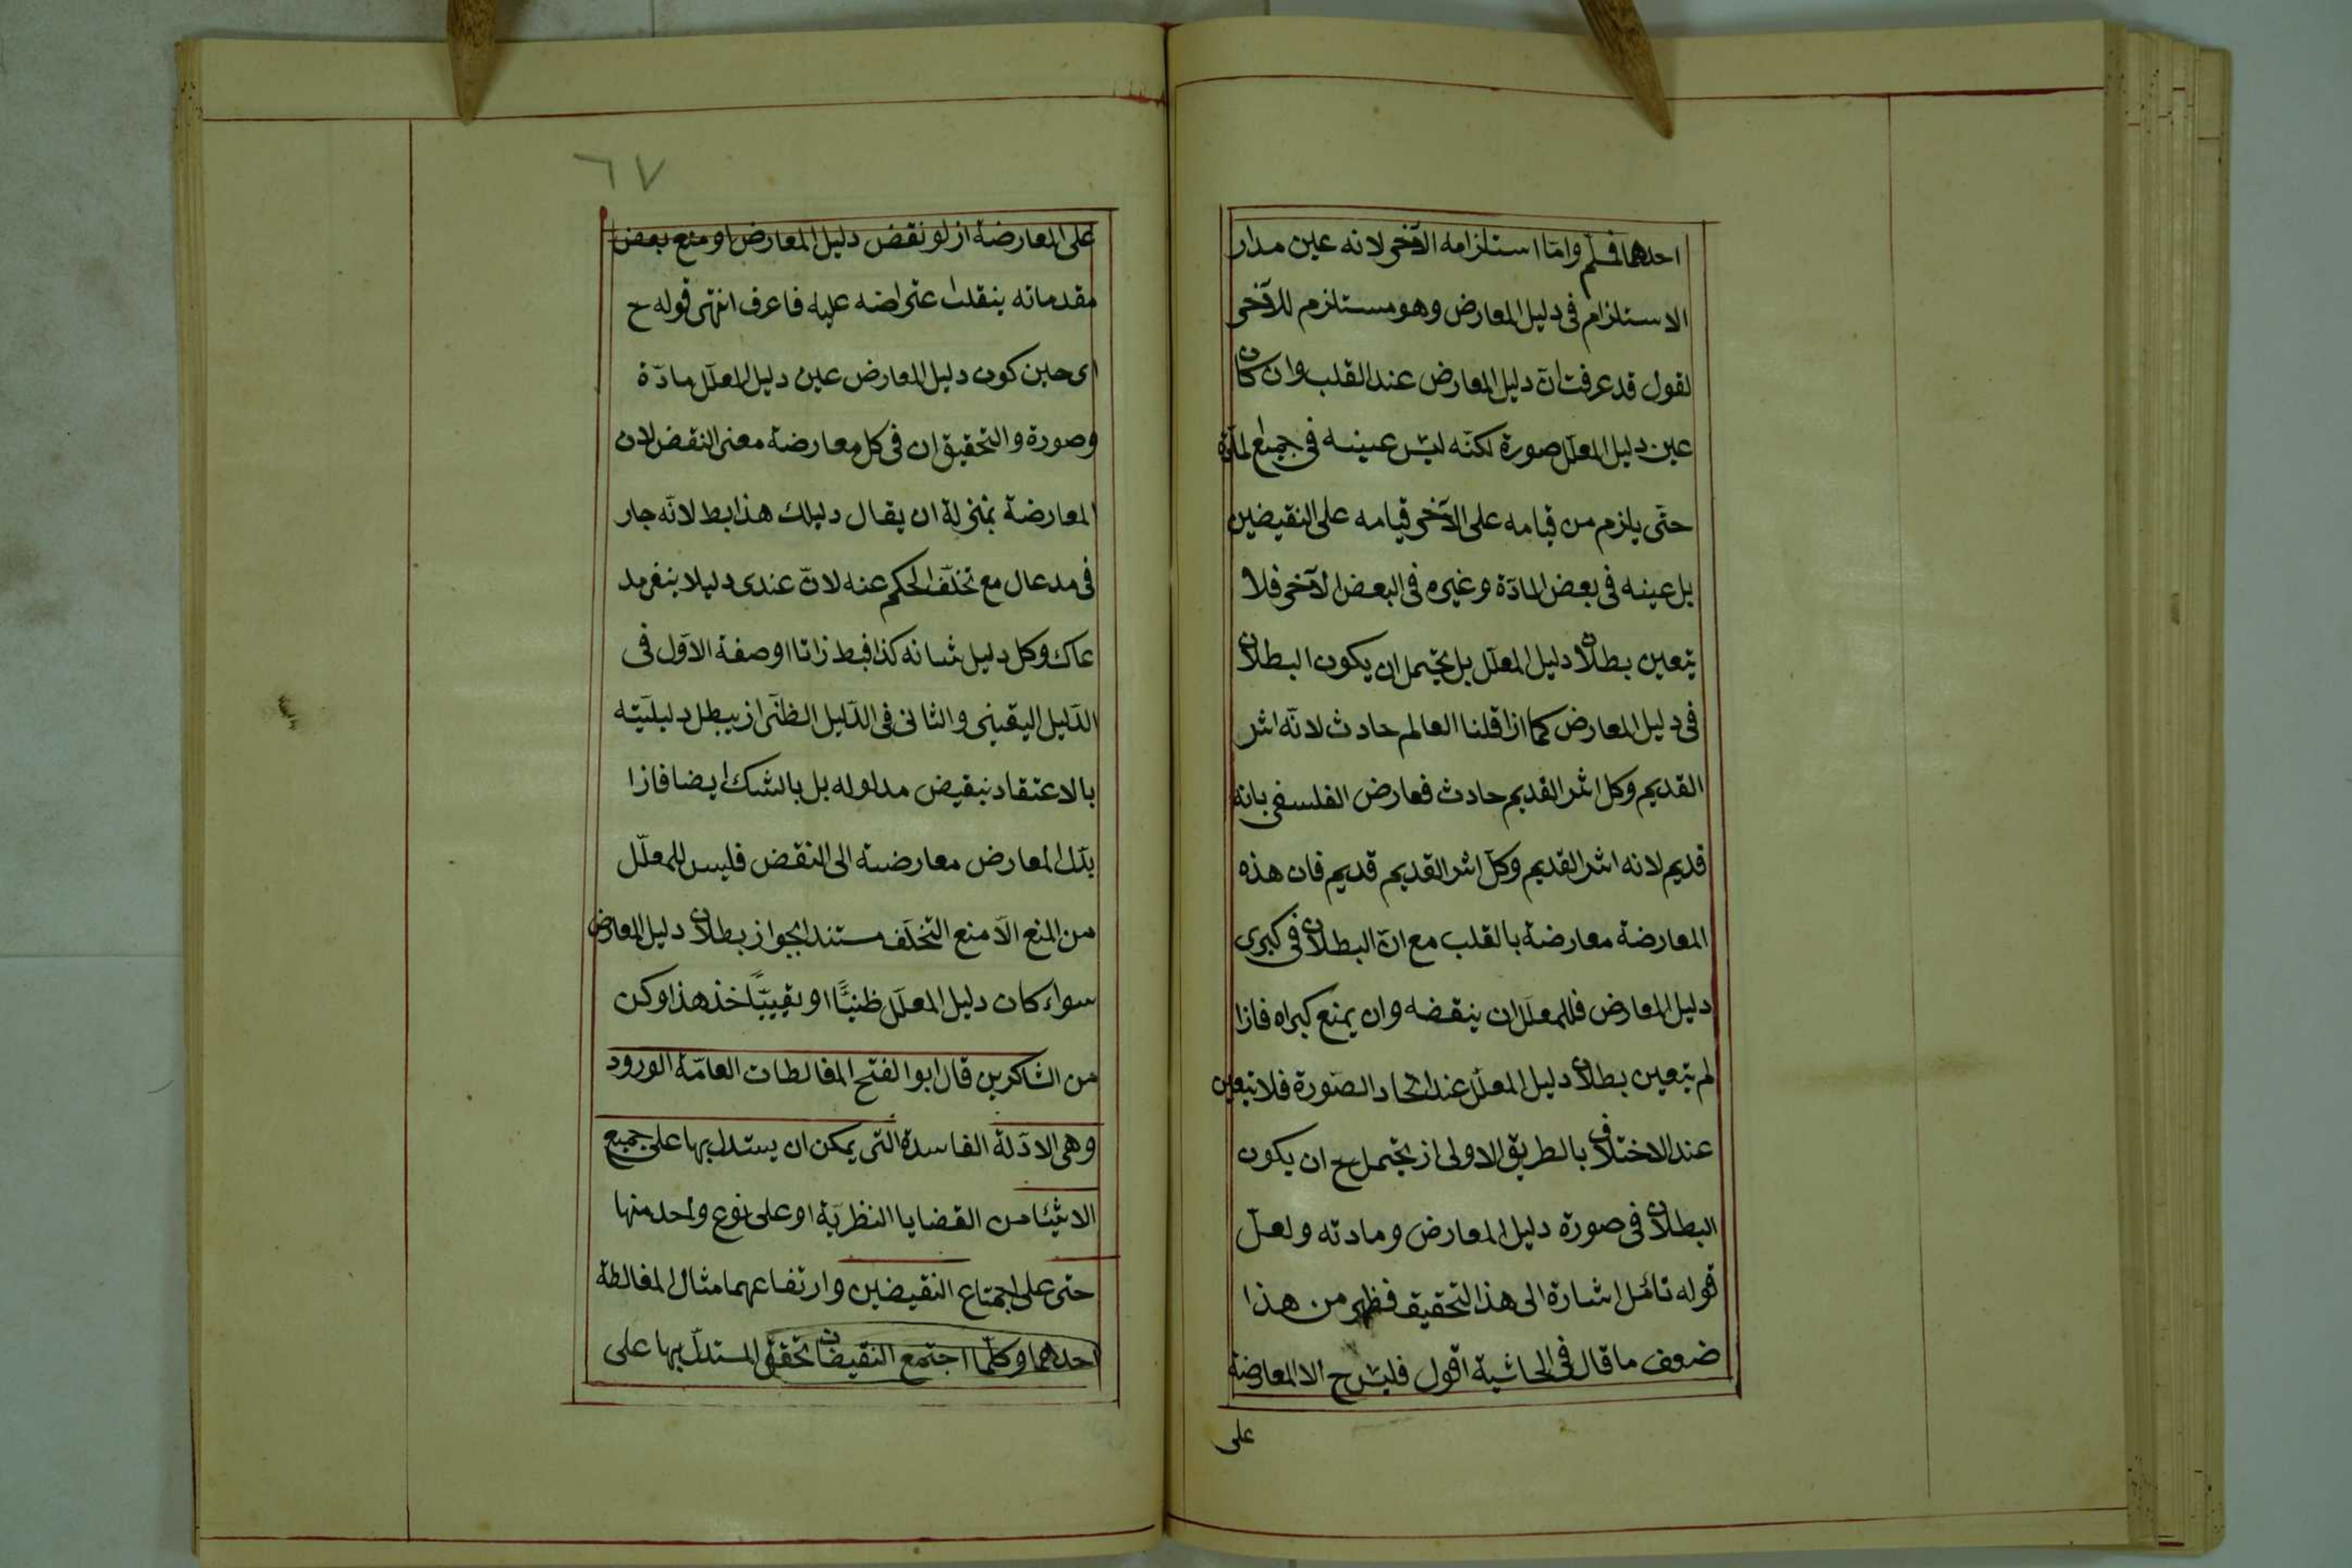 احدهما فسلم وامّا استلزامه الآخر لانه عين مدار
الاستلزام فى دليل المعارض وهو مستلزم للآخر
لقول قد عرفت انّ دليل المعارض عند القلب وان كان
عين دليل المعلّل صورة لكنّه ليس عينه فى جميع المادّة
حتّى يلزم من قيامه على الآخر قيامه على النقيضين
بل عينه فى بعض المادّة وغيره فى البعض الآخر فلا
يتعين بطلان دليل المعلّل بل يحتمل ان يكون البطلان
فى دليل المعارض كما اذا قلنا العالم حادث لانّه اثر
القديم وكل اثر القديم حادث فعارض الفلسفى بانه
قديم لانه اثر القديم وكلّ اثر القديم قديم فان هذه
المعارضة معارضة بالقلب مع انّ البطلان فى كبرى
دليل المعارض فللمعلّل ان ينقضه وان يمنع كبراه فاذا
لم يتعين بطلان دليل المعلّل عند اتحاد الصّورة فلا تيعين
عند الاختلاف بالطريق الاولى از يحتمل ح ان يكون
البطلان فى صورة دليل المعارض ومادته ولعلّ
قوله تأمّل اشارة الى هذا التحقيق فظهر من هذا
ضعف ما قال فى الحاشية اقول فليس ح الا المعارضة
على
٦٧
على المعارضة از لو نقض دليل المعارض او منع بعض
مقدماته ينقلب اعتراضه عليه فاعرف انتهى قوله ح
اى حين كون دليل المعارض عين دليل المعلّل مادّة
وصورة والتحقيق ان فى كل معارضة معنى النقض لان
المعارضة بمنزلة ان يقال دليلك هذا بط لانّه جار
فى مدعاك مع تخلّف الحكم عنه لانّ عندى دليلا ينفى مد
عاك وكل دليل شانه كذا فبط زاتا او صفة الاوّل فى
الدّليل اليقينى والثانى فى الدّليل الظنّى از يبطل دليليّته
بالاعتقاد بنقيض مدلوله بل بالشك ايضا فازا
بدّل المعارض معارضته الى النقض فليس للمعلّل
من المنع الّا منع التخلّف مستندا بجواز بطلان دليل المعارض
سواء كان دليل المعلّل ظنيًّا او يقينيًّا خذ هذا وكن
من الشاكرين قال ابو الفتح المغالطات العامّة الورود
وهى الادّلة الفاسدة التى يمكن ان يستدل بها على جميع
الاشيئا من القضايا النظريّة او على نوع واحد منها
حتى على اجمتاع النقيضين وارتفاعهما مثال المغالطة
احدهما وكلّما اجتمع النقيضان تحقق المستدلّ بها على